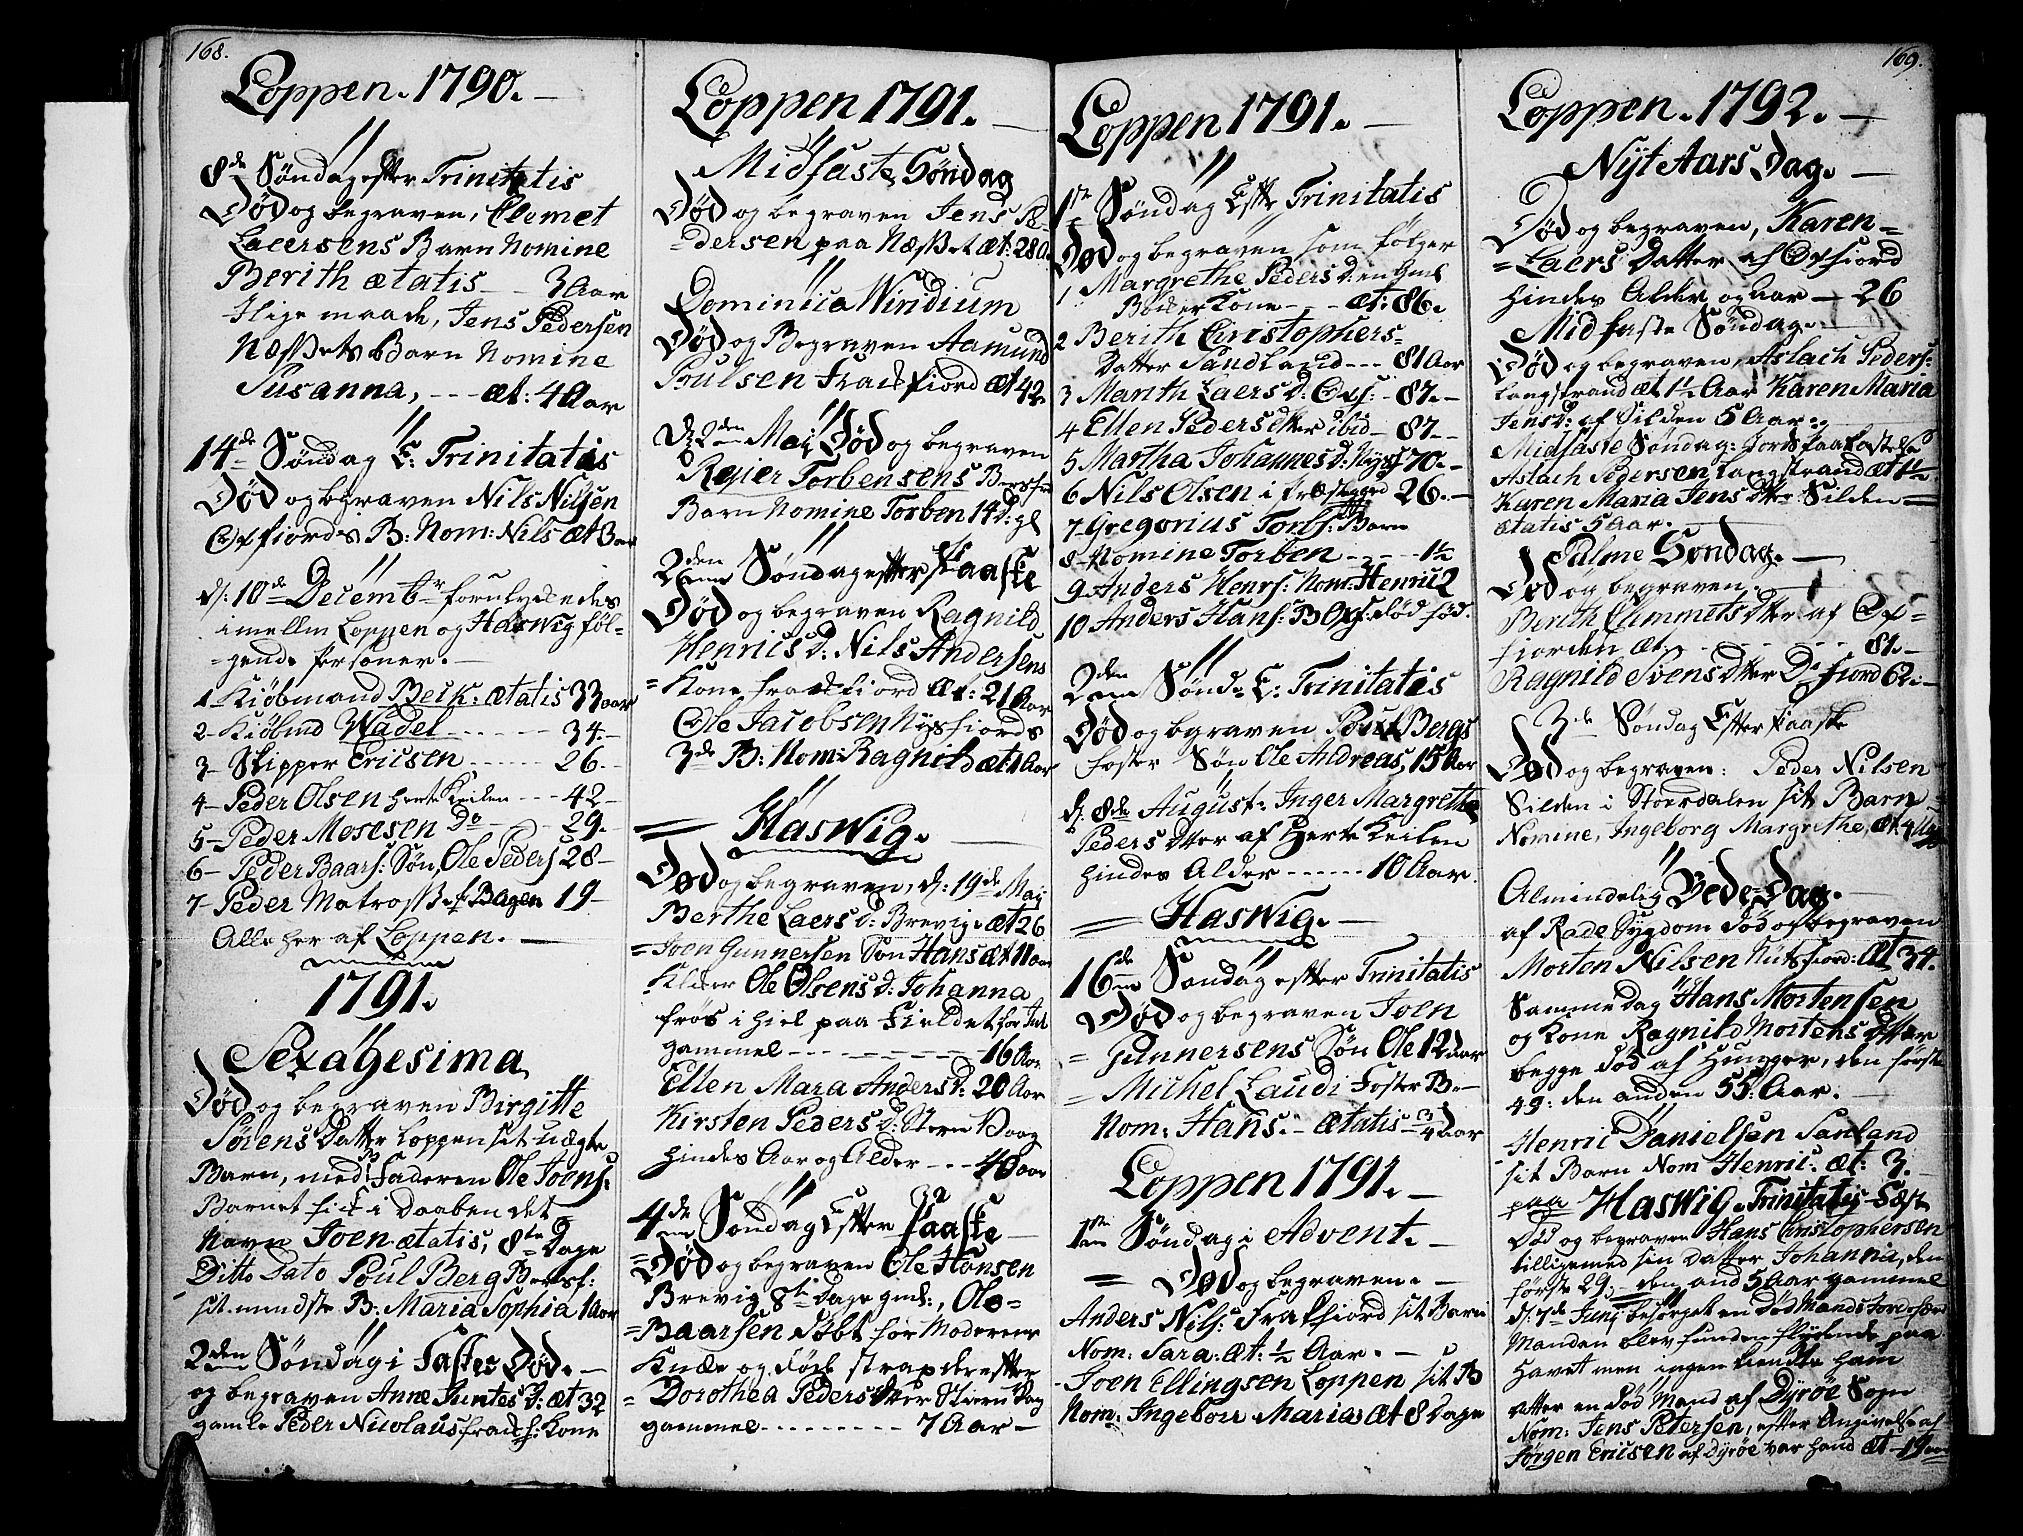 168.
Loppen. 1790.
8de Søndag efter Trinitatis
Død og begraven, Clemet
Laersens Barn Nomine
Berith ætatis 3 Aar
Jens Pedersen
Barn Nomine
Susanna, --- æt: 4 Aar
14de Søndag E: Trinitatis
Død og begraven Nils Nilsen
Oxfiords B: Nom: Nils æt 3 aar
d: 10de Decembr forulykkedes
imellem Loppen og Haswig føl-
gende Personer.
1 Kiøbmand Beck: ætatis 33 aar
2 Kiøbmd Wadel 34
3 Skipper Ericsen 26
4 Peder Olsen 42
5 Peder Mosesen Do 29.
6 Peder Baars: Søn, Ole Peders 28
7 Peder Matros 19
Alle her af Loppen.
1791.
Sexagesima
Død og begraven Birgitte
Sørens Datter Loppen sit uægte
Barn, med Faderen Ole Joens:
Barnet fik i Daaben det
Navn Joen ætatis, 8te Dage
Ditto Dato Poul Berg
sit mindste B: Maria Sophia 1 Aar
2den Søndag i Faste Død.
og begraven Anne æt 32
gamle Peder Nicolaus Kone
Loppen 1791.
Midfaste Søndag
Død og begraven Jens Pe-
dersen paa Næsset æt: 28
Dominica Viridium
Død og Begraven Aamund
Poulsen Frakfiord æt 42
D: 2den Maj Død og begraven
Torbensens
Barn Nomine Torben 14 d: gl
2den Søndag efter Paaske
Død og begraven Ragnild
Henrics d: Nils Andersens
Kone Frakfiord Æt: 21 Aar
Ole Jacobsen Nysfiords
3de B: Nom: Ragnild æt 1 Aar
Haswig.
Død og begraven, d: 19de Maj
Berthe Laers d: Brevig æt 26
Joen Gunnersen Søn Hans æt 11
Ole Olsens d: Johanna
frøs i hiel paa Fieldet
gammel 16 Aar
Ellen Mara Anders d: 20 Aar
Kirsten Peders d:
hindes Aar og Alder --- 40 aar
4de Søndag Efter Paaske
Død og begraven Ole Hansen
Brevig 8te Dage gml:, Ole
Baarsen døbt før Moderens
Knæe og døde strax derefter
Dorothea Peders Dtter
gammel 7 Aar
Loppen 1791.
1ste Søndag Eftr Trinitatis
Død og begraven som følger
1 Margrethe Peders d: en
Kone --- æt: 86.
2 Berith Christophers
Datter Sandland --- 81 Aar
3 Marith Laers d: 87.
4 Ellen Peders dtter ibid 87
5 Martha Johannes d: 70.
6 Nils Olsen i 26.
7 Gregorius Torbs: Barn
8 Nomine Torben 1½
9 Anders Henrs: Nom: Henric 2
10 Anders Hans: B Oxf: dødfød.
2den Sønd: E: Trinitatis
Død og begraven Poul Bergs
Foster Søn Ole Andreas 15 Aar
d: 8de August: Inger Margrethe
Peders Dtter af
hindes Alder 10 Aar
Haswig.
16de Søndag efter Trinitatis
Død og begraven Joen
Gunnersens Søn Ole 12 Aar
Michel Laudi Foster B:
Nom: Hans: ætatis 3/4 aar
Loppen 1791.
1ste Søndag i Advent.
Død og begraven.
Anders Nils: Frakfiord sit Barn
Nom: Sara: æt: ½ Aar.
Joen Ellingsen Loppen sit B
Nom: Ingeborr Maria æt 8 Dage
169.
Loppen. 1792.
Nyt Aars Dag.
Død og begraven, Karen
Laers Datter af Oxfiord
hindes Alder og aar 26
Midfaste Søndag.
Død og begraven, Aslach Peders:
Langstrand æt 1½ Aar Karen Maria
Jensd: af Silden 5 Aar.
Midfaste Søndag: Jords Paakastelse
Aslach Pedersen Langstrand æt 1½
Karen Maria Jens dtter Silden
ætatis 5 Aar.
Palme Søndag.
Død og begraven.
Berith Clemmets Dtter af Ox-
fiorden æt. 81.
Ragnild Svens Dtter Do fiord 62.
3de Søndag Efter Paaske
Død og begraven: Peder Nilsen
Silden i Stordalen sit Barn
Nomine, Ingeborg Margrethe, æt 4
Almindelig Bede-Dag.
af Rade Sygdom død og begraven
Morten Nilsen Nusfiord: Æt 34.
Samme Dag Hans Mortensen
og Kone Ragnild Mortens Dtter
begge død af Hunger, den første
49: den anden 55: Aar.
Henric Danielsen Sanland
sit Barn Nom Henric: æt: 3.
paa Haswig. Trinitatis Fæst
Død og begraven Hans Christophersen
tilligemed sin Datter Johanna, den
første 29. den and 5 Aar gammel
d: 7de Junj besørget en død Mands Jordefærd
Manden blev funden flydende paa
Havet men ingen kiendte ham
atter en død Mand af Dyrøe Sogn
Nom: Jens Petersen, efter Angivelse af
Jørgen Ericsen af Dyrøe var hand æt 19 aar